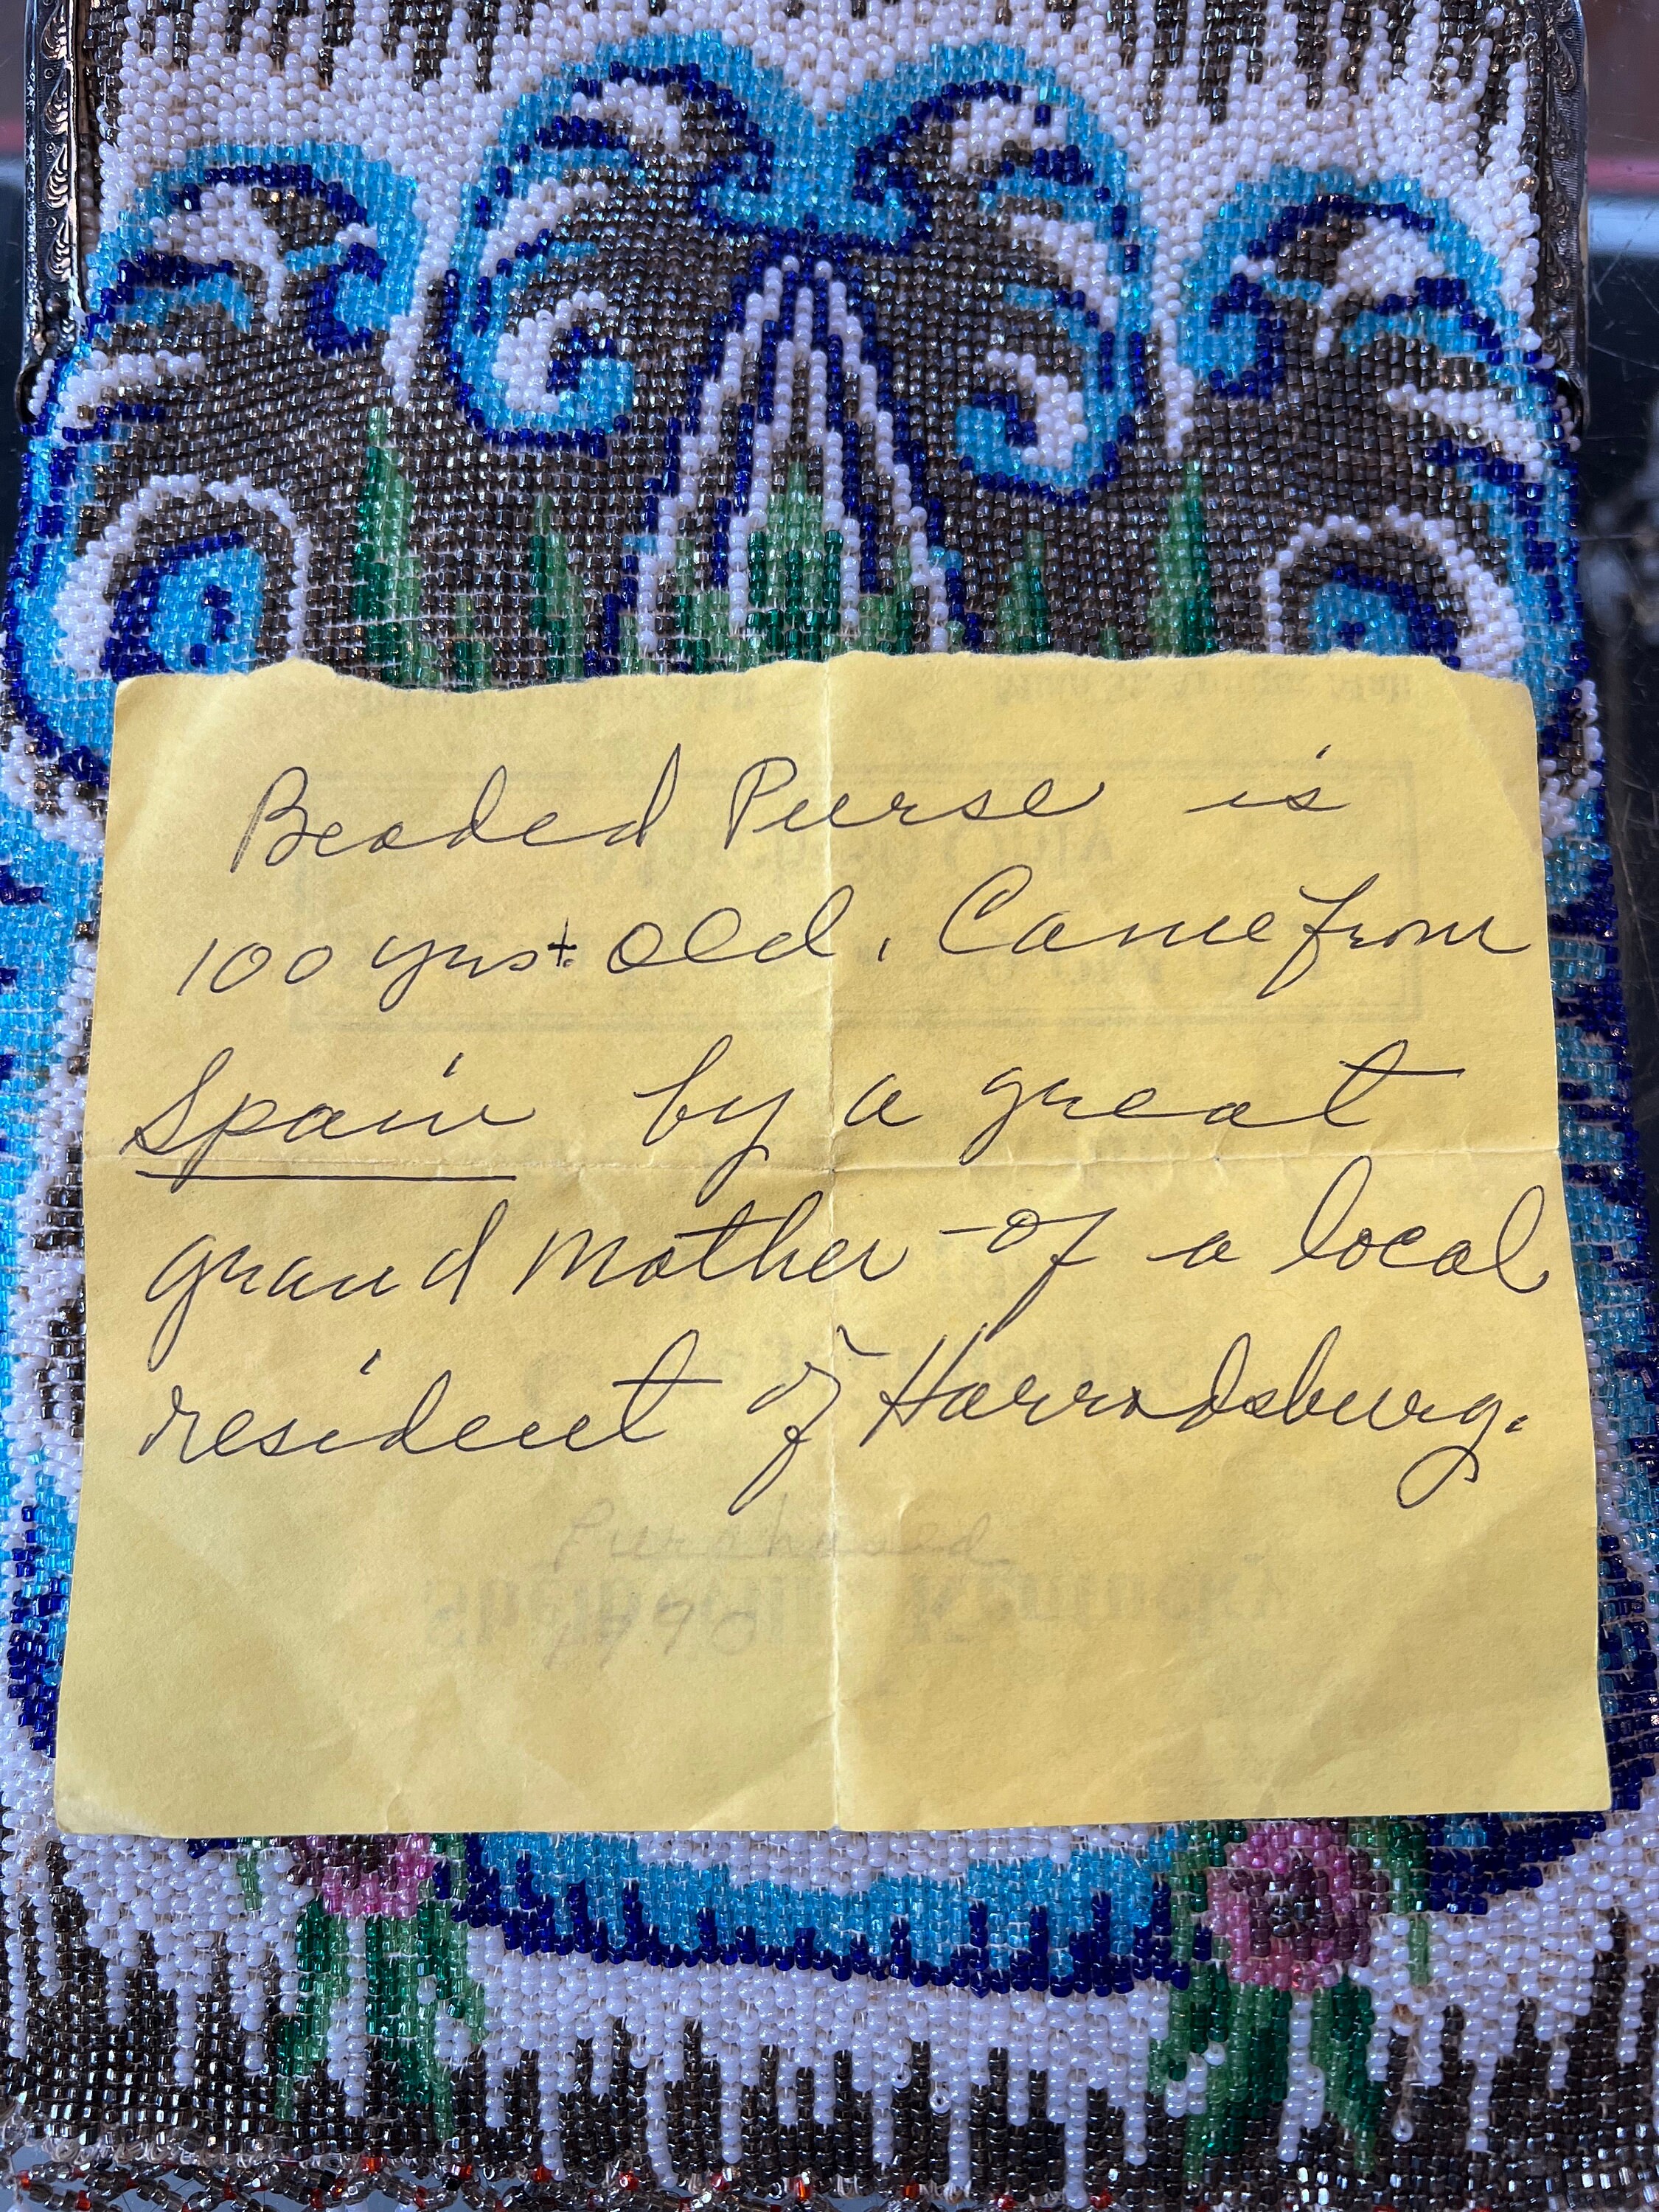 Beaded Purse is
100 yrs+ Old. Came from
Spain by a great
grand mother of a local
resident of Harrodsburg.
Purchased
1990